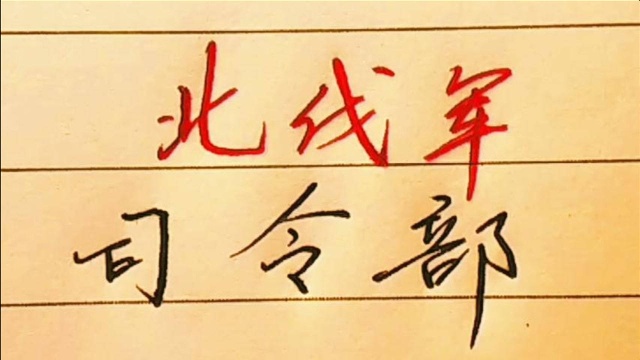 北伐军
司令部